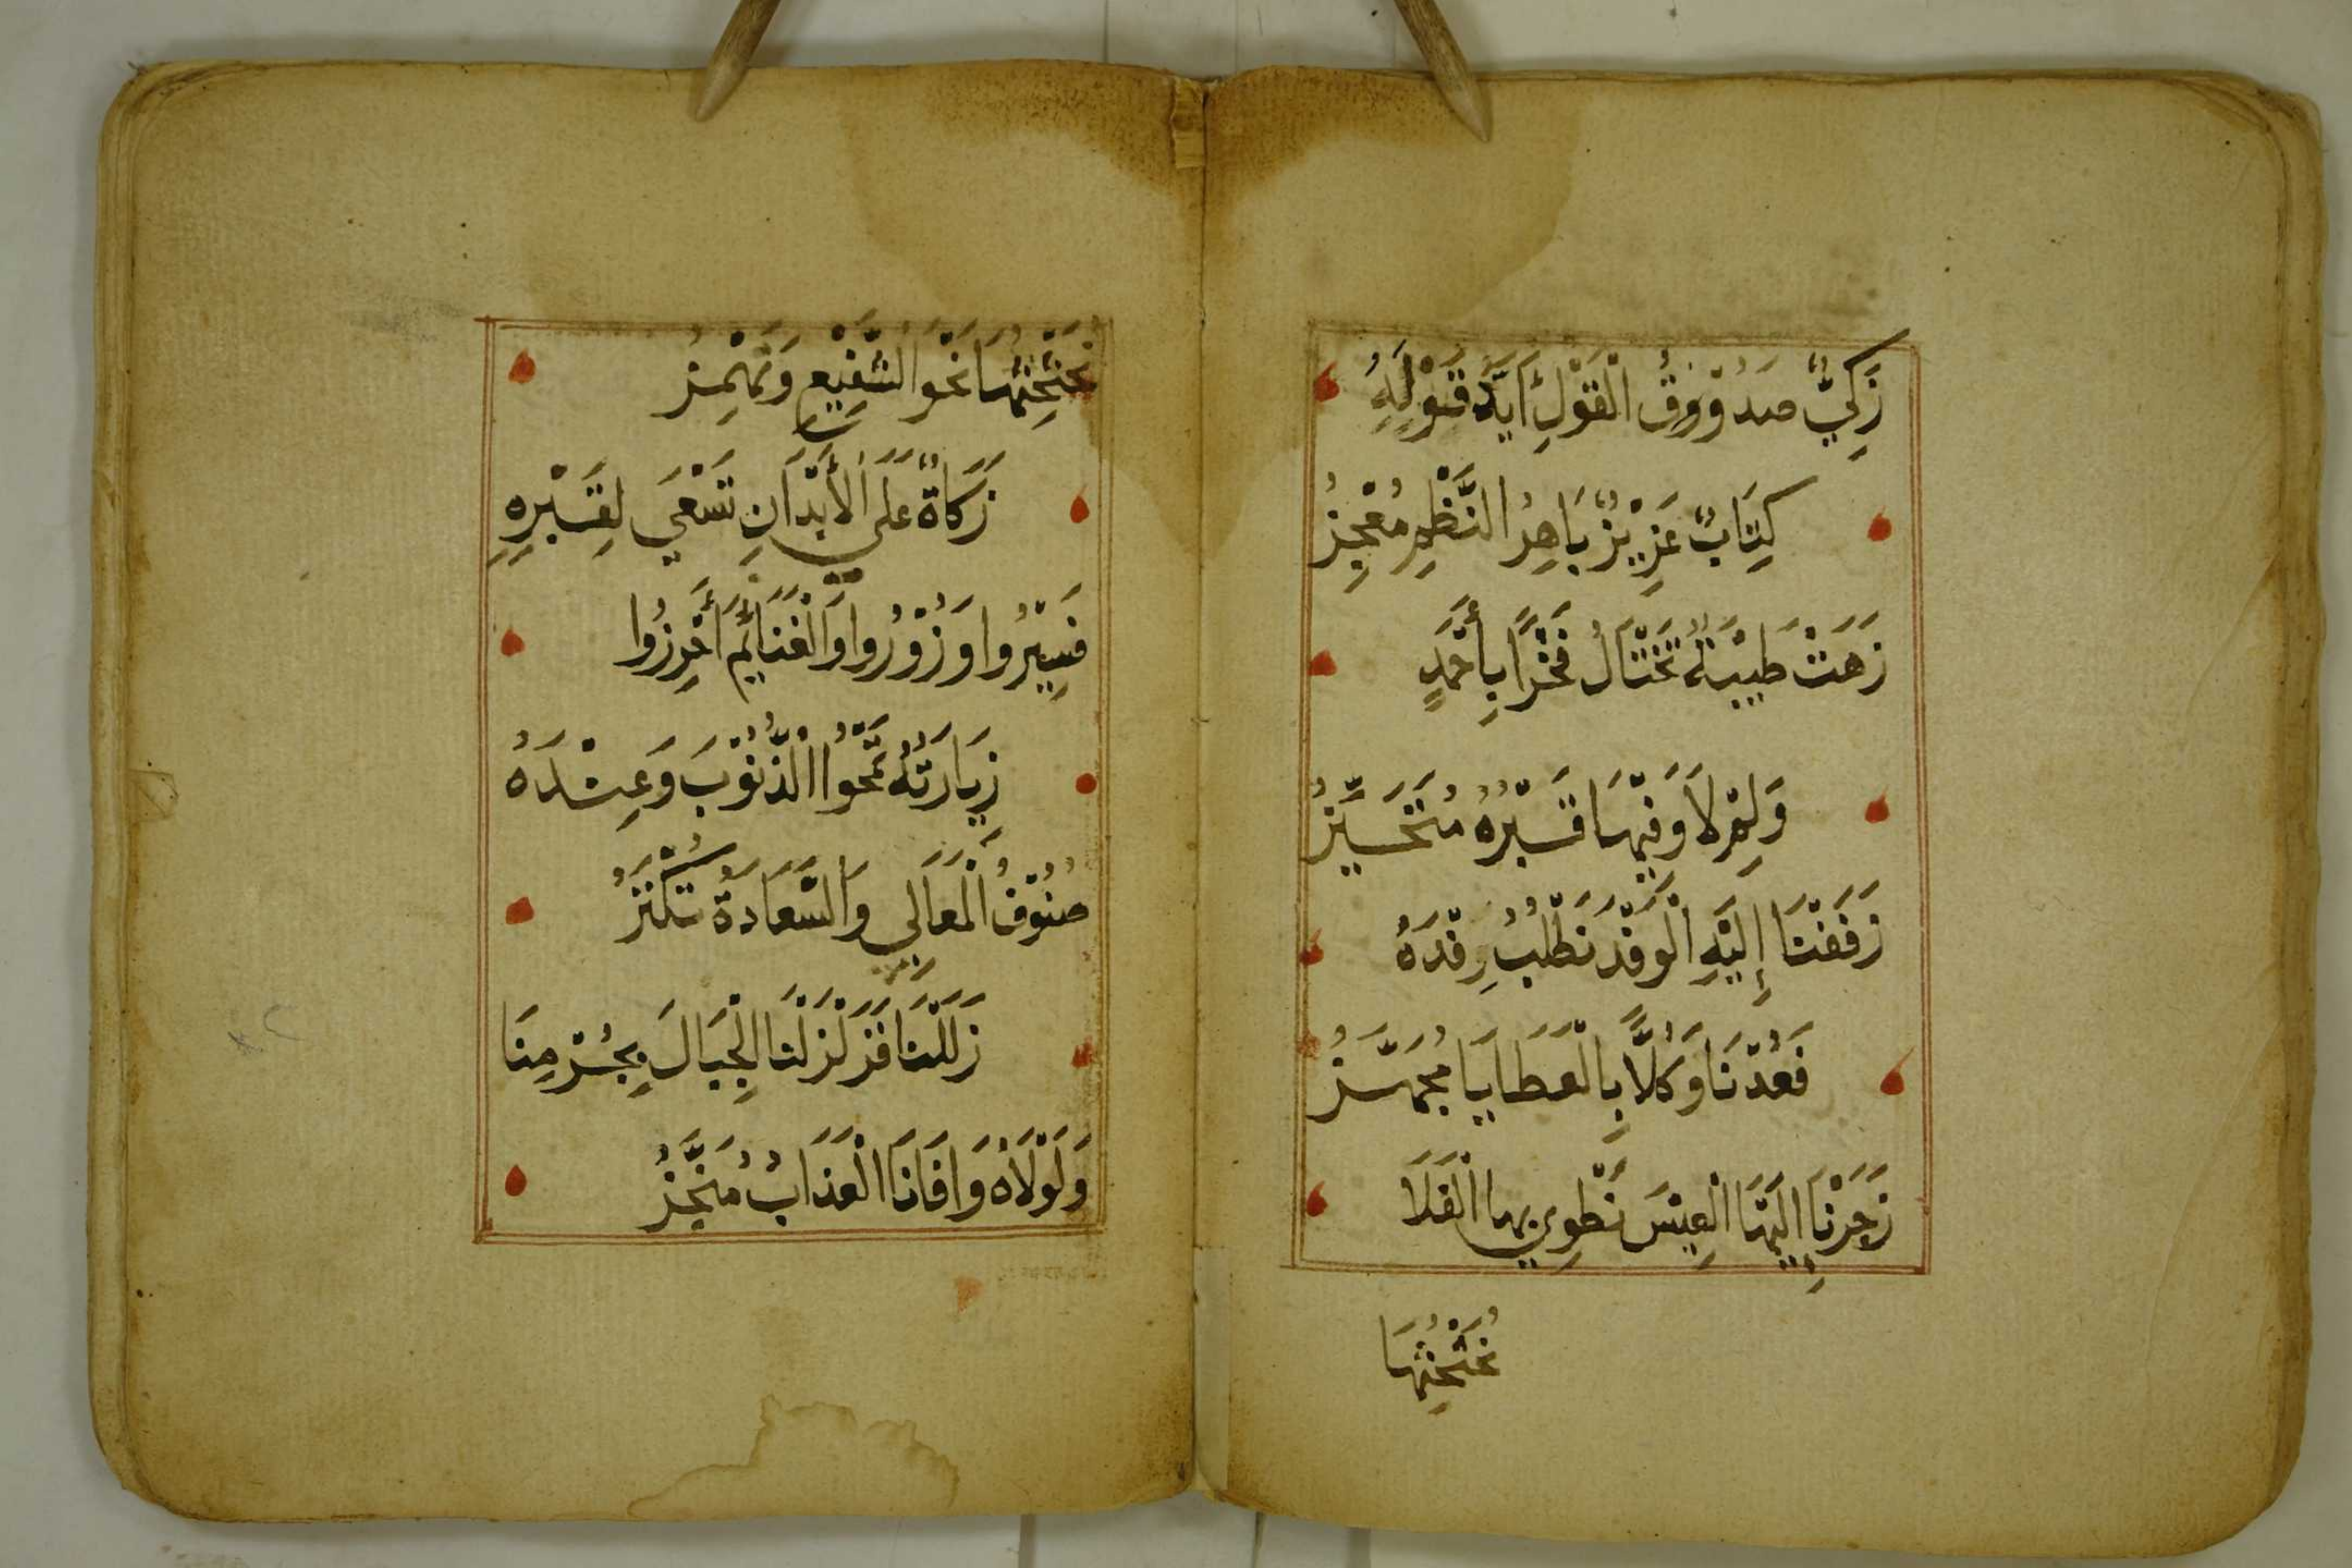 زَكِيٌّ صَدُوْقُ الْقَوْلِ اٰيَةُ قَوْلِهِ
كِتَابٌ عَزِيْزٌ بَاهِرُ النَّظْمِ مُعْجِزُ
زَهَتْ طَيْبَةٌ تَخْتَالُ فَخْرًا بِأَحْمَدٍ
وَلِمْ لَا وَفِيْهَا قَبْرُهُ مُتَحَيِّزُ
زَفَفْنَا إِلَيْهِ الْوَفْدَ نَطْلُبُ رِفْدَهُ
فَعُدْنَا وَكُلًّا بِالْعَطَايَا مُجَهَّزُ
زَجَرْنَا اِلَيْهَا الْعِيْسَ نَطْوِي بِهَا الْفَلَا
نُحَثْحِثُهَا
نُحَثْحِثُهَا نَحْوَ الشَّفِيْعِ وَنَهْمِزُ
زَكَاةٌ عَلَى الْأَبْدَانِ تَسْعَى لِقَبْرِهِ
فَسِيْرُوا وَزُوْرُوا وَالْغَنَائِمَ أَحْرِزُوا
زِيَارَتُهُ تَمْحُوا الذُّنُوْبَ وَعِنْدَهُ
صُنُوْفُ الْمَعَالِي وَالسَّعَادَةُ تُكْنَزُ
زَلَلْنَا فَزَلْزَلْنَا الْجِبَالَ بِجُرْمِنَا
وَلَوْلَاهُ وَافَانَا الْعَذَابُ مُنَجَّزُ